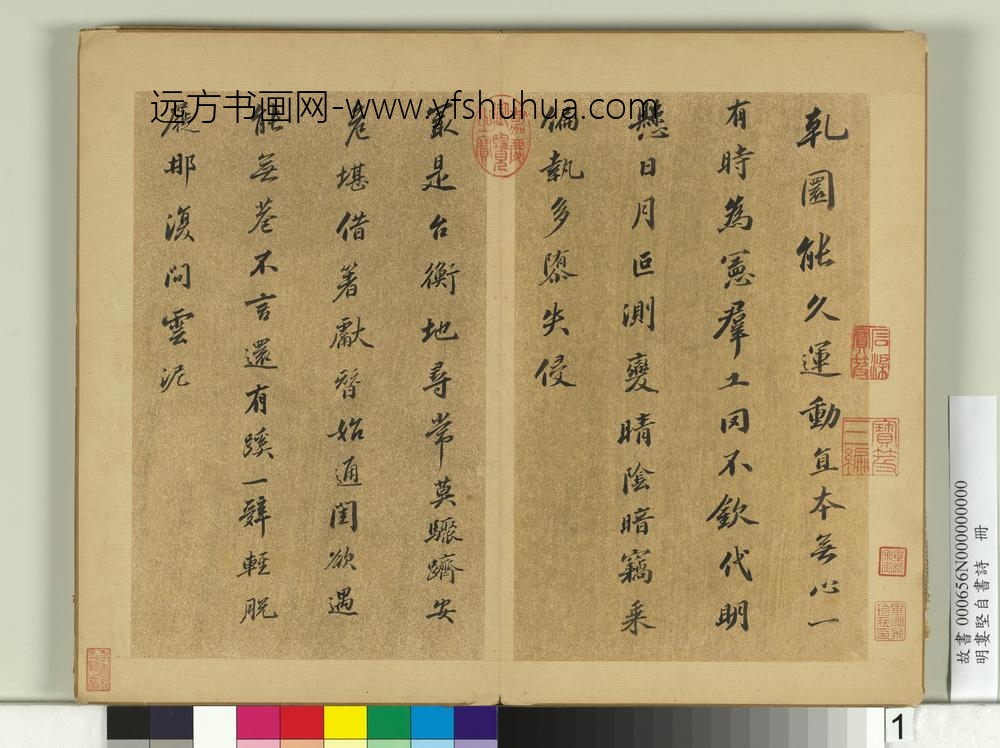 远方书画网-www.yfshuhua.com
乹圜能久運動直本無心一
有時為憲羣工罔不欽代明
懸日月叵測變晴陰暗竊乘
偏執多隳失侵
最是台衡地尋常莫驟躋安
危堪借箸獻替始通閨欲遇
能無졸不言還有蹊一辭輕脫
處那復問雲泥
嘉慶御覽之寶
石渠寶笈
寶笈三編
故書 000656N000000000
明婁堅自書詩 冊
1